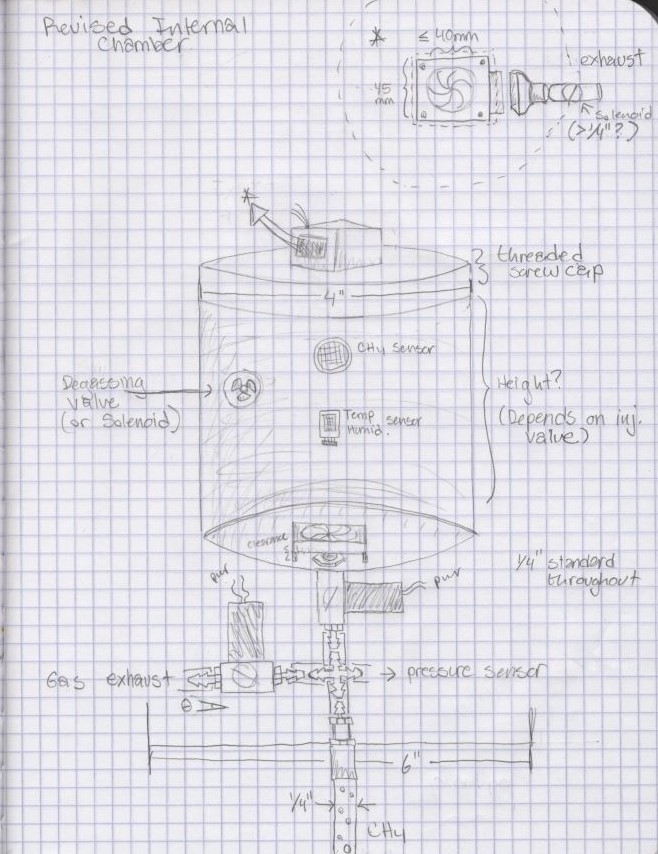 Revised Internal
Chamber
*
≤ 40mm
45
mm
exhaust
Solenoid
(>1/4"?)
*
threaded
screw cap
4"
CH4 sensor
Degassing
Valve
(or Solenoid)
Temp
Humid. sensor
Height?
(Depends on inj.
valve)
clearance
1/4" standard
throughout
pwr
pwr
Gas exhaust
→ pressure sensor
6"
1/4"
CH4